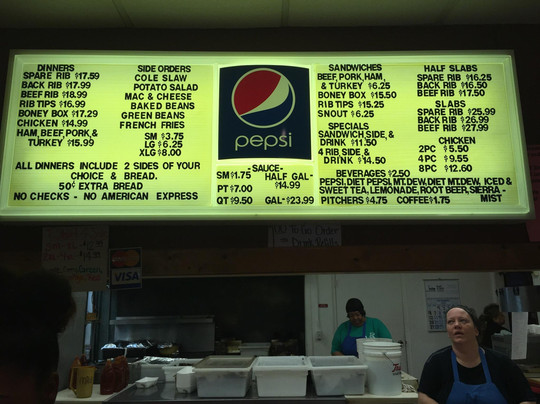 DINNERS
SPARE RIB $17.59
BACK RIB $17.99
BEEF RIB $18.99
RIB TIPS $16.99
BONEY BOX $17.29
CHICKEN $14.99
HAM, BEEF, PORK, &
TURKEY $15.99
SIDE ORDERS
COLE SLAW
POTATO SALAD
MAC & CHEESE
BAKED BEANS
GREEN BEANS
FRENCH FRIES
SM $3.75
LG $6.25
XLG $8.00
ALL DINNERS INCLUDE 2 SIDES OF YOUR
CHOICE & BREAD.
50¢ EXTRA BREAD
NO CHECKS - NO AMERICAN EXPRESS
pepsi
-SAUCE-
SM $1.75 HALF GAL-
$14.99
PT $7.00
QT $9.50 GAL-$23.99
SANDWICHES
BEEF, PORK, HAM,
& TURKEY $6.25
BONEY BOX $15.50
RIB TIPS $15.25
SNOUT $6.25
SPECIALS
SANDWICH, SIDE, &
DRINK $11.50
4 RIB, SIDE, &
DRINK $14.50
HALF SLABS
SPARE RIB $16.25
BACK RIB $16.50
BEEF RIB $17.50
SLABS
SPARE RIB $25.99
BACK RIB $26.99
BEEF RIB $27.99
CHICKEN
2PC $5.50
4PC $9.55
8PC $12.60
BEVERAGES $2.50
PEPSI, DIET PEPSI, MT.DEW, DIET MT.DEW, ICED &
SWEET TEA, LEMONADE, ROOT BEER, SIERRA-
MIST
PITCHERS $4.75 COFFEE $1.75
VISA